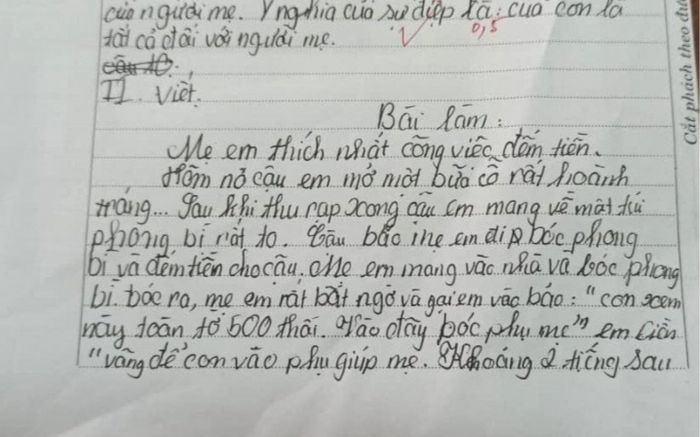 của người mẹ. Ý nghĩa của sự điệp là: của con là
tất cả đối với người mẹ.
0,5
câu 10:
II. Viết.
Bài làm:
Mẹ em thích nhất công việc đếm tiền.
Hôm nọ cậu em mở một bữa cỗ rất hoành
tráng... Sau khi thu rạp xong cậu em mang về một túi
phong bì rất to. Cậu bảo mẹ em bóc phong
bì và đếm tiền cho cậu. Mẹ em mang vào nhà và bóc phong
bì. bóc ra, mẹ em rất bất ngờ và gọi em vào bảo: "con xem
này toàn tờ 500 thôi. Vào đây bóc phụ mẹ" em liền
"vâng để con vào phụ giúp mẹ. Khoảng 2 tiếng sau
Cắt phách theo đư